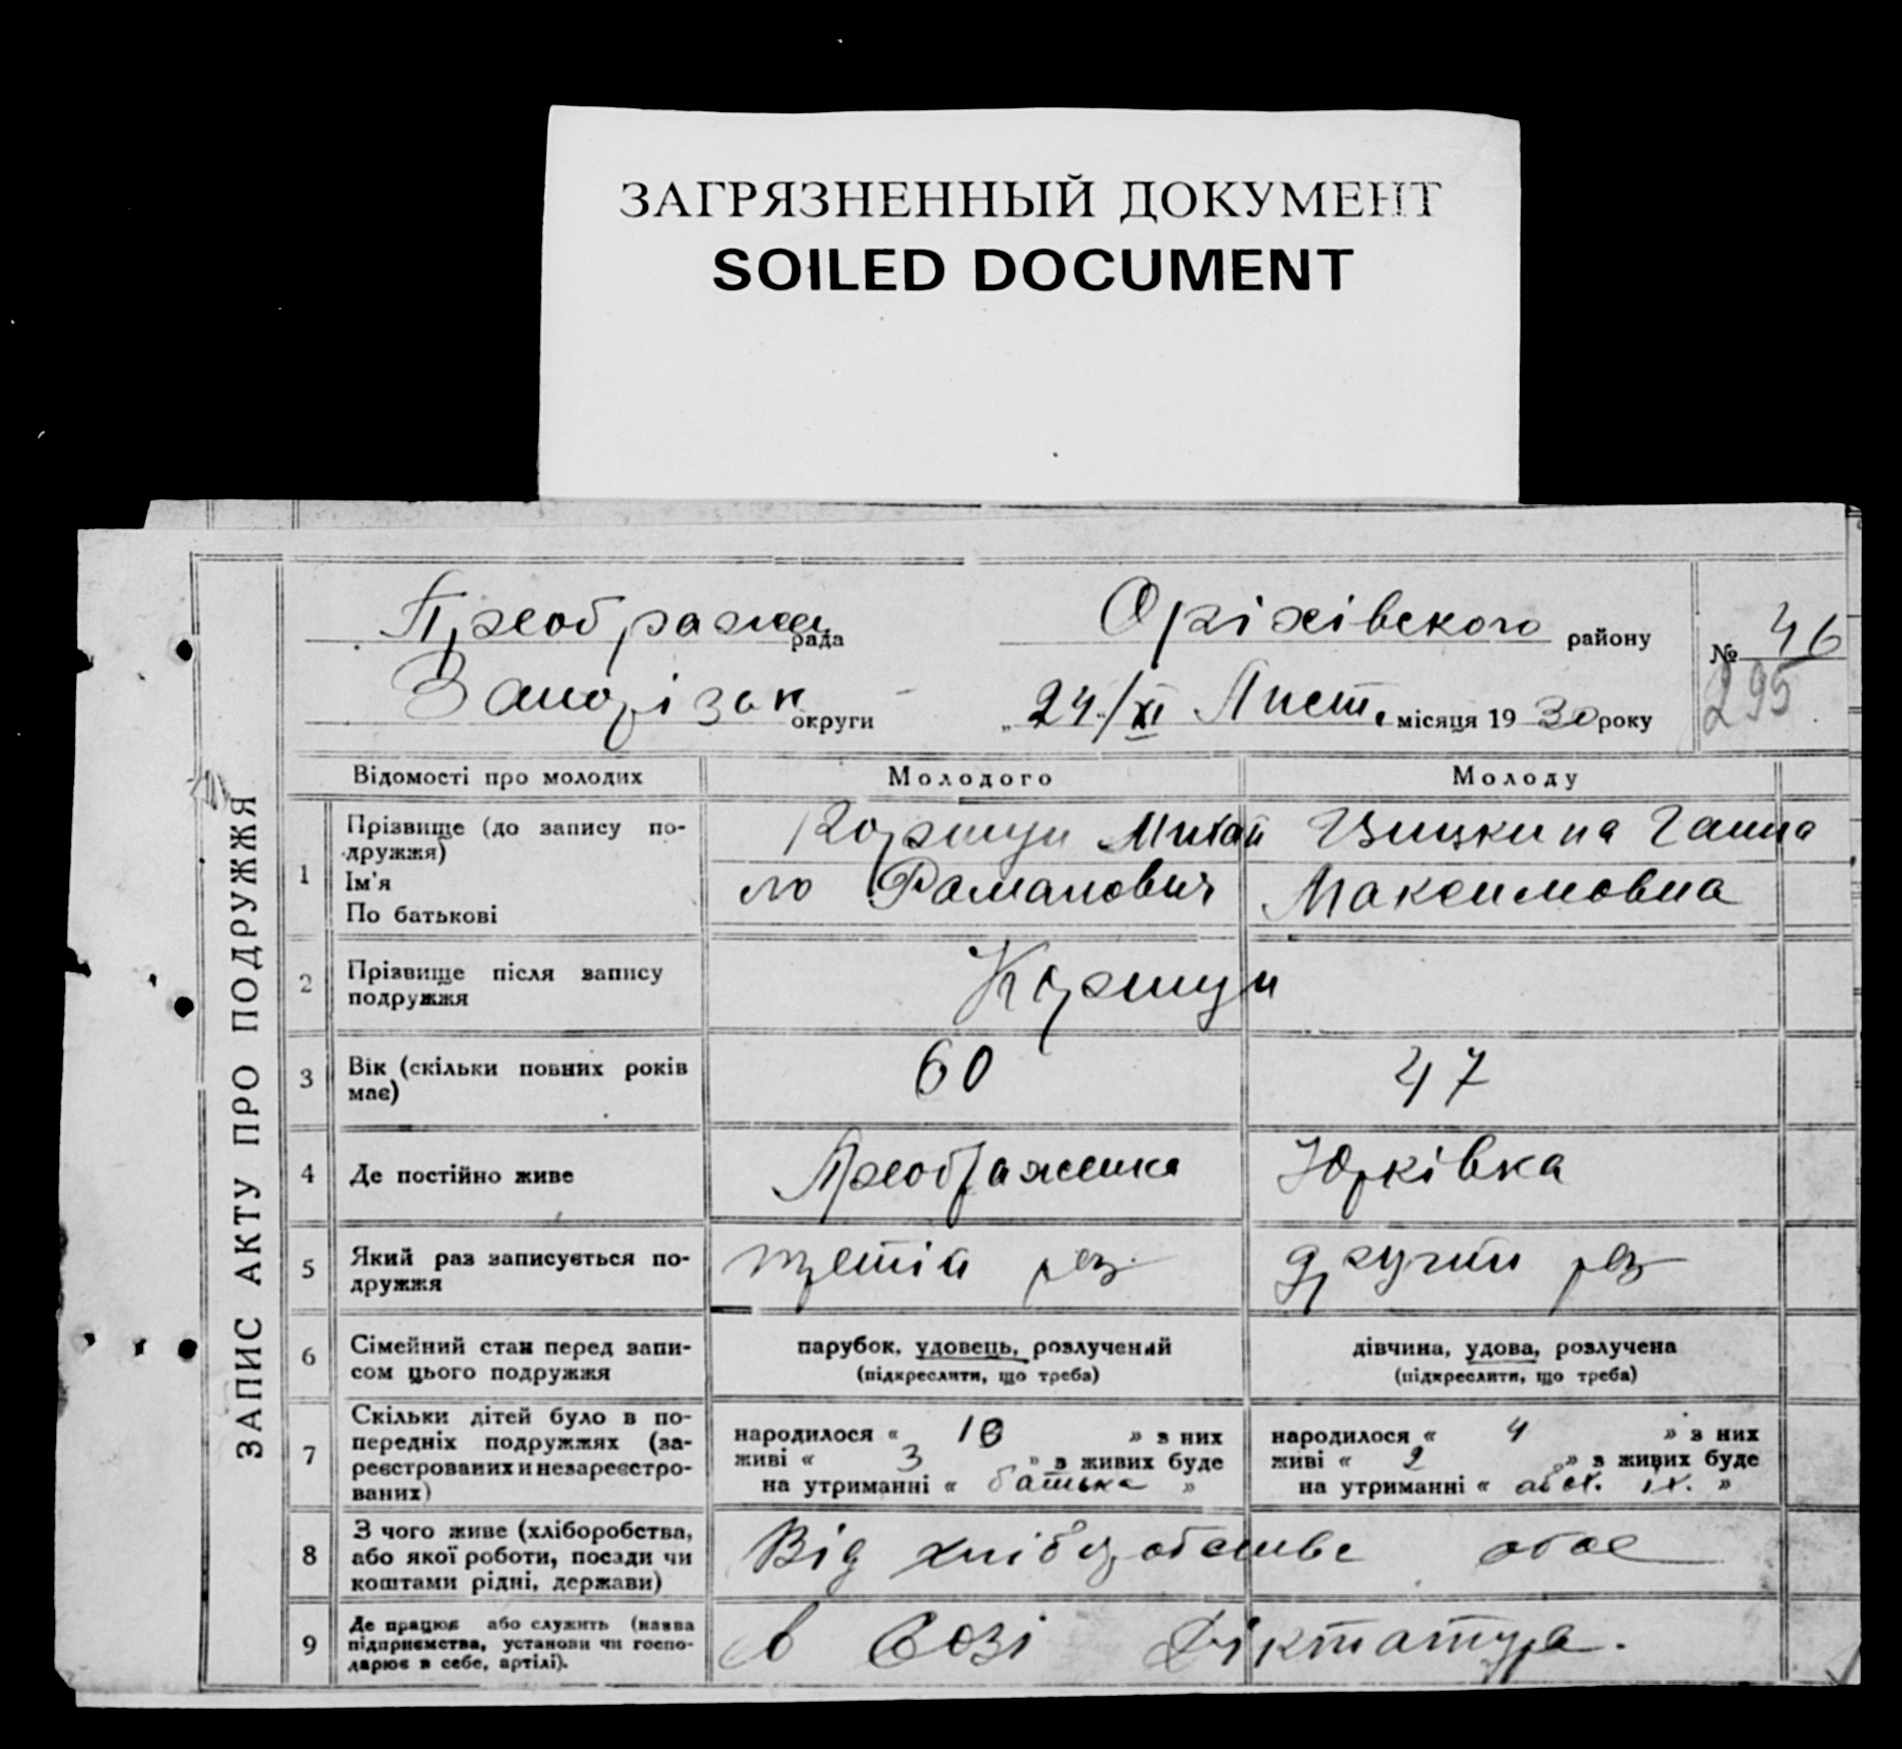 ЗАГРЯЗНЕННЫЙ ДОКУМЕНТ
SOILED DOCUMENT
ЗАПИС АКТУ ПРО ПОДРУЖЖЯ
Преображен рада Оріхівского району № 46
Запорізьк округи „24/XI Лист. місяця 1930 року 295
Відомості про молодих Молодого Молоду
1 Прізвище (до запису по-
дружжя)
Ім'я
По батькові
Коршун Михай
ло Романович
Ганна
Максимовна
2 Прізвище після запису
подружжя
Коршун
3 Вік (скільки повних років
має)
60 47
4 Де постійно живе Преображенка Юрківка
5 Який раз записується по-
дружжя
третій раз другий раз
6 Сімейний стан перед запи-
сом цього подружжя
парубок, удовець, розлучений
(підкреслити, що треба)
дівчина, удова, розлучена
(підкреслити, що треба)
7 Скільки дітей було в по-
передніх подружжях (за-
реєстрованих и незареєстро-
ваних)
народилося « 10 » з них
живі « 3 » з живих буде
на утриманні « батька »
народилося « 4 » з них
живі « 2 » з живих буде
на утриманні « »
8 З чого живе (хліборобства,
або якої роботи, посади чи
коштами рідні, держави)
Від хліборобства обоє
9 Де працює або служить (назва
підприємства, установи чи госпо-
дарює в себе, артілі).
в Созі Діктатура.